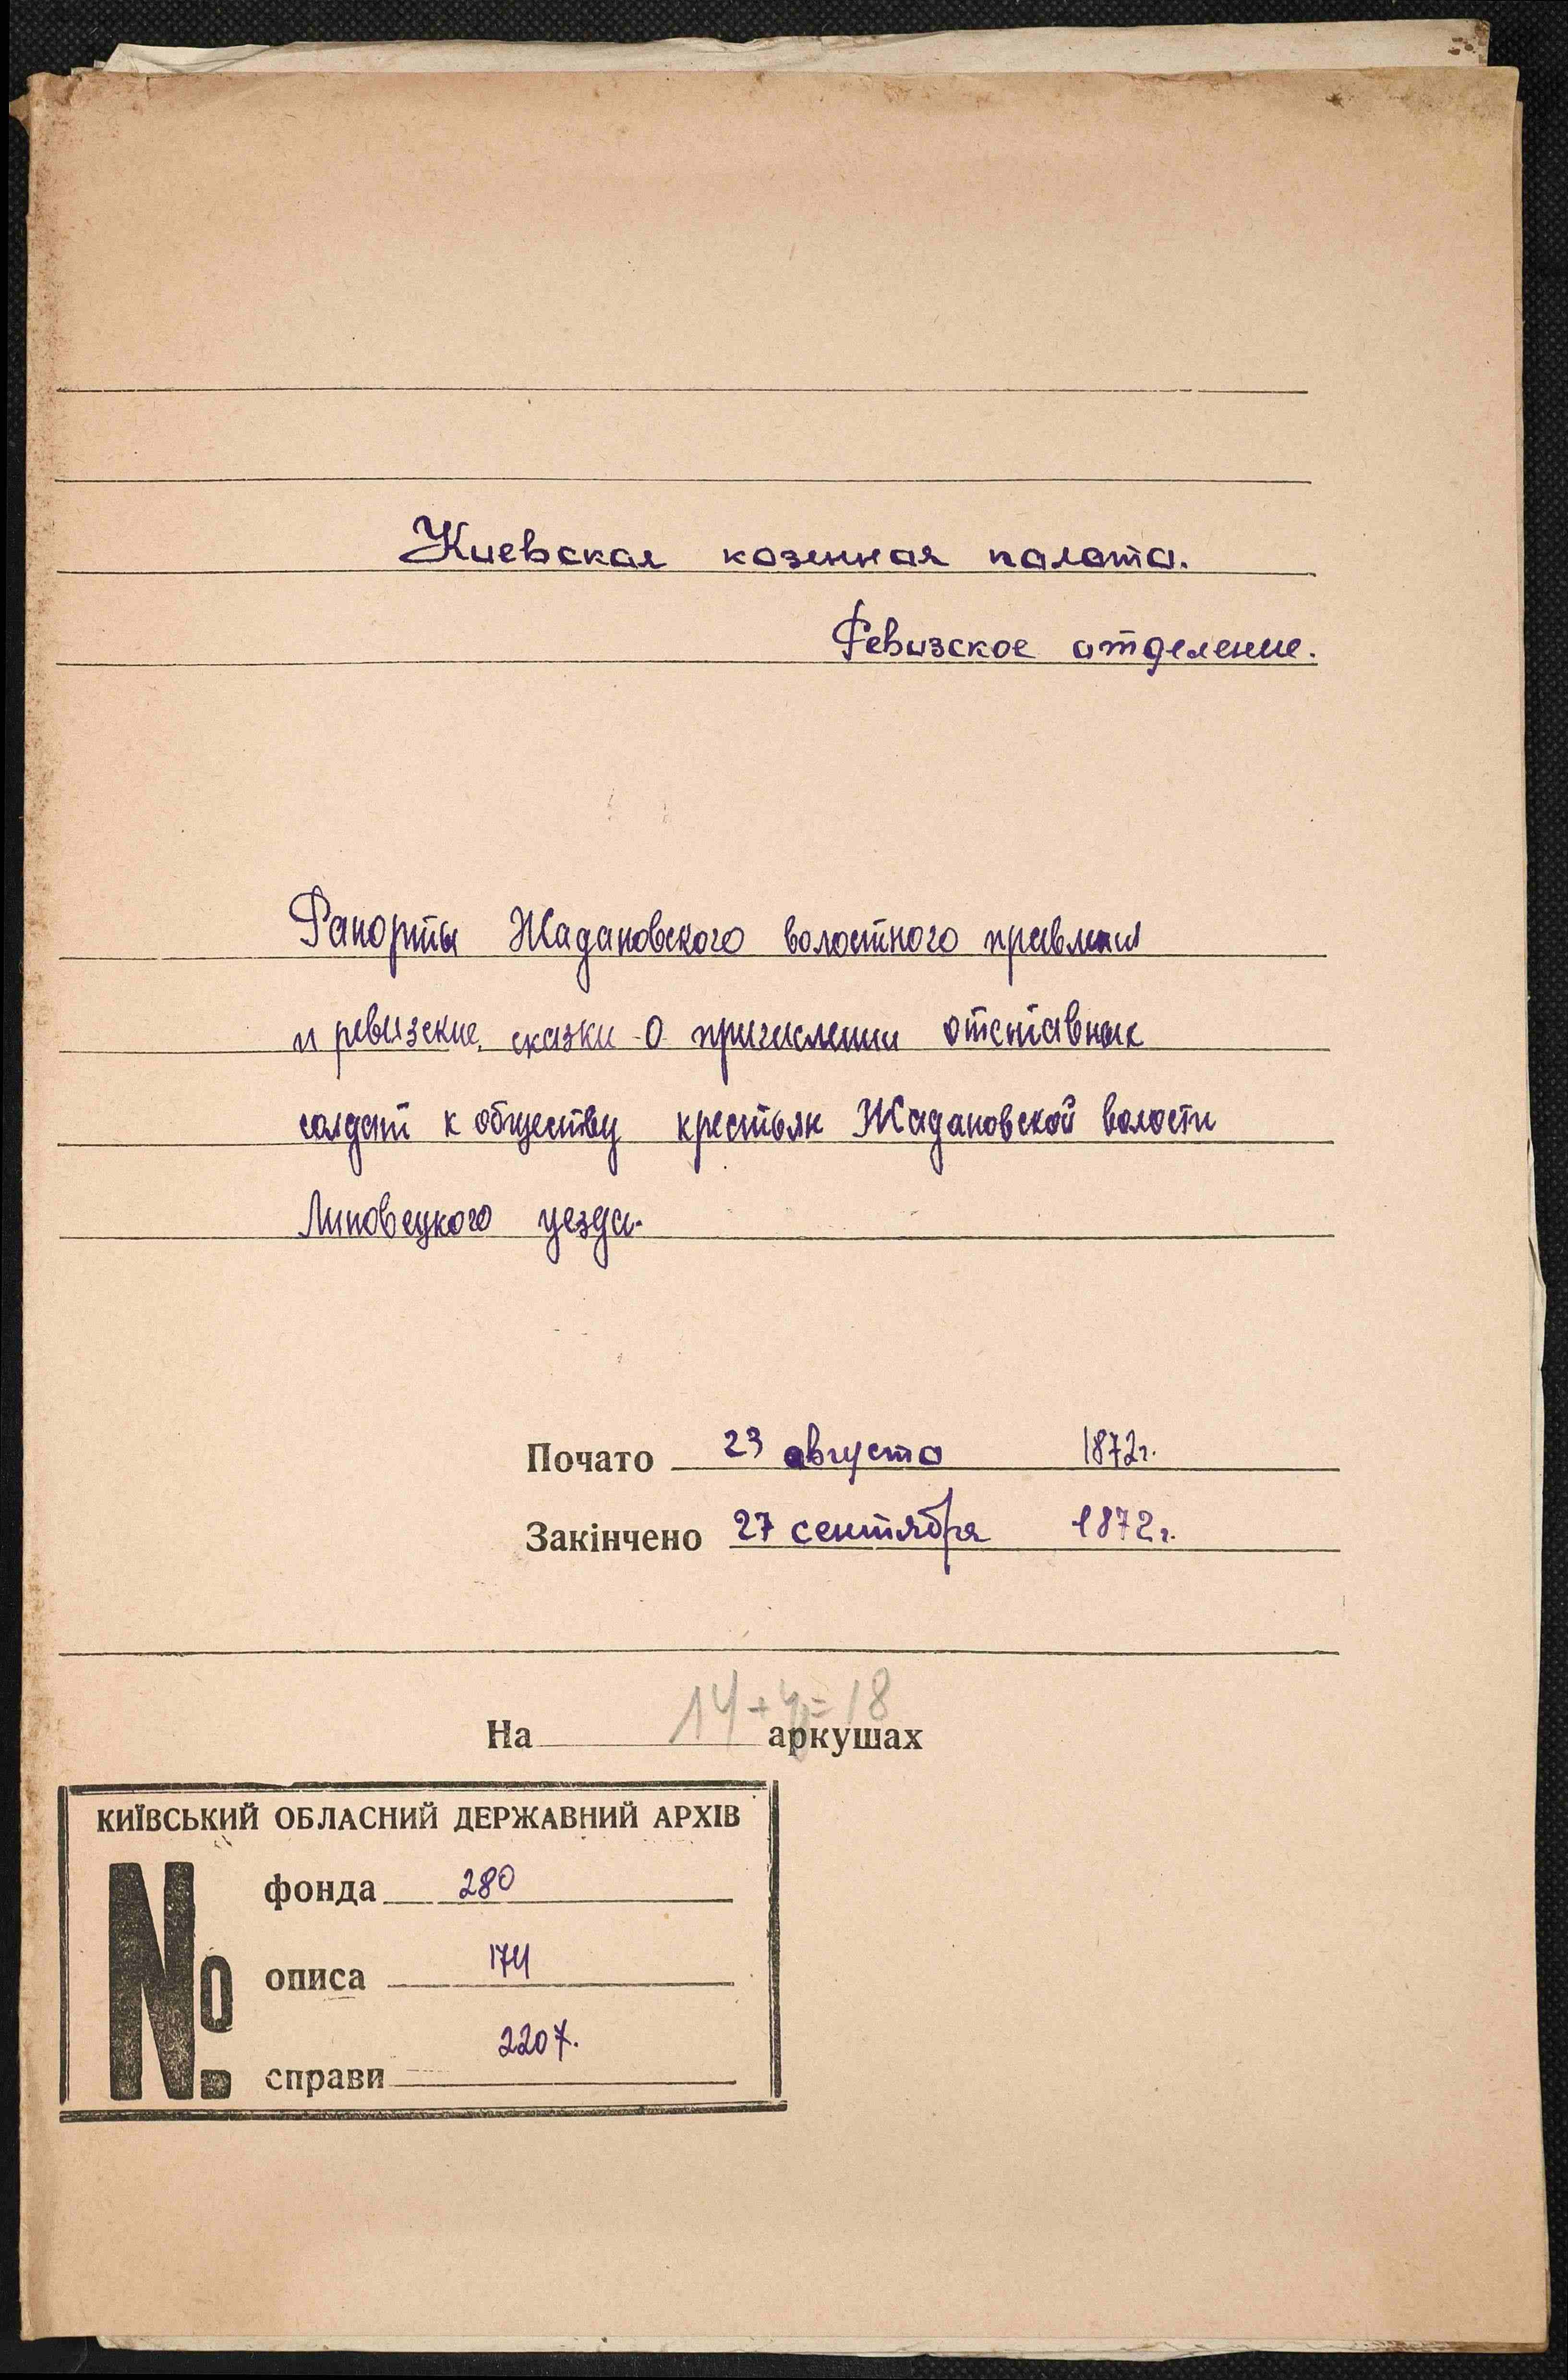 Киевская козенная палата.
Ревизское отделение.
Рапорты Жадановского волостного правления
и ревизские сказки о причислении отставных
солдат к обществу крестьян Жадановской волости
Липовецкого уезда.
Почато 23 августа 1872г.
Закінчено 27 сентября 1872г.
14+4=18
На аркушах
КИЇВСЬКИЙ ОБЛАСНИЙ ДЕРЖАВНИЙ АРХІВ
№
фонда 280
описа 174
справи 2207.